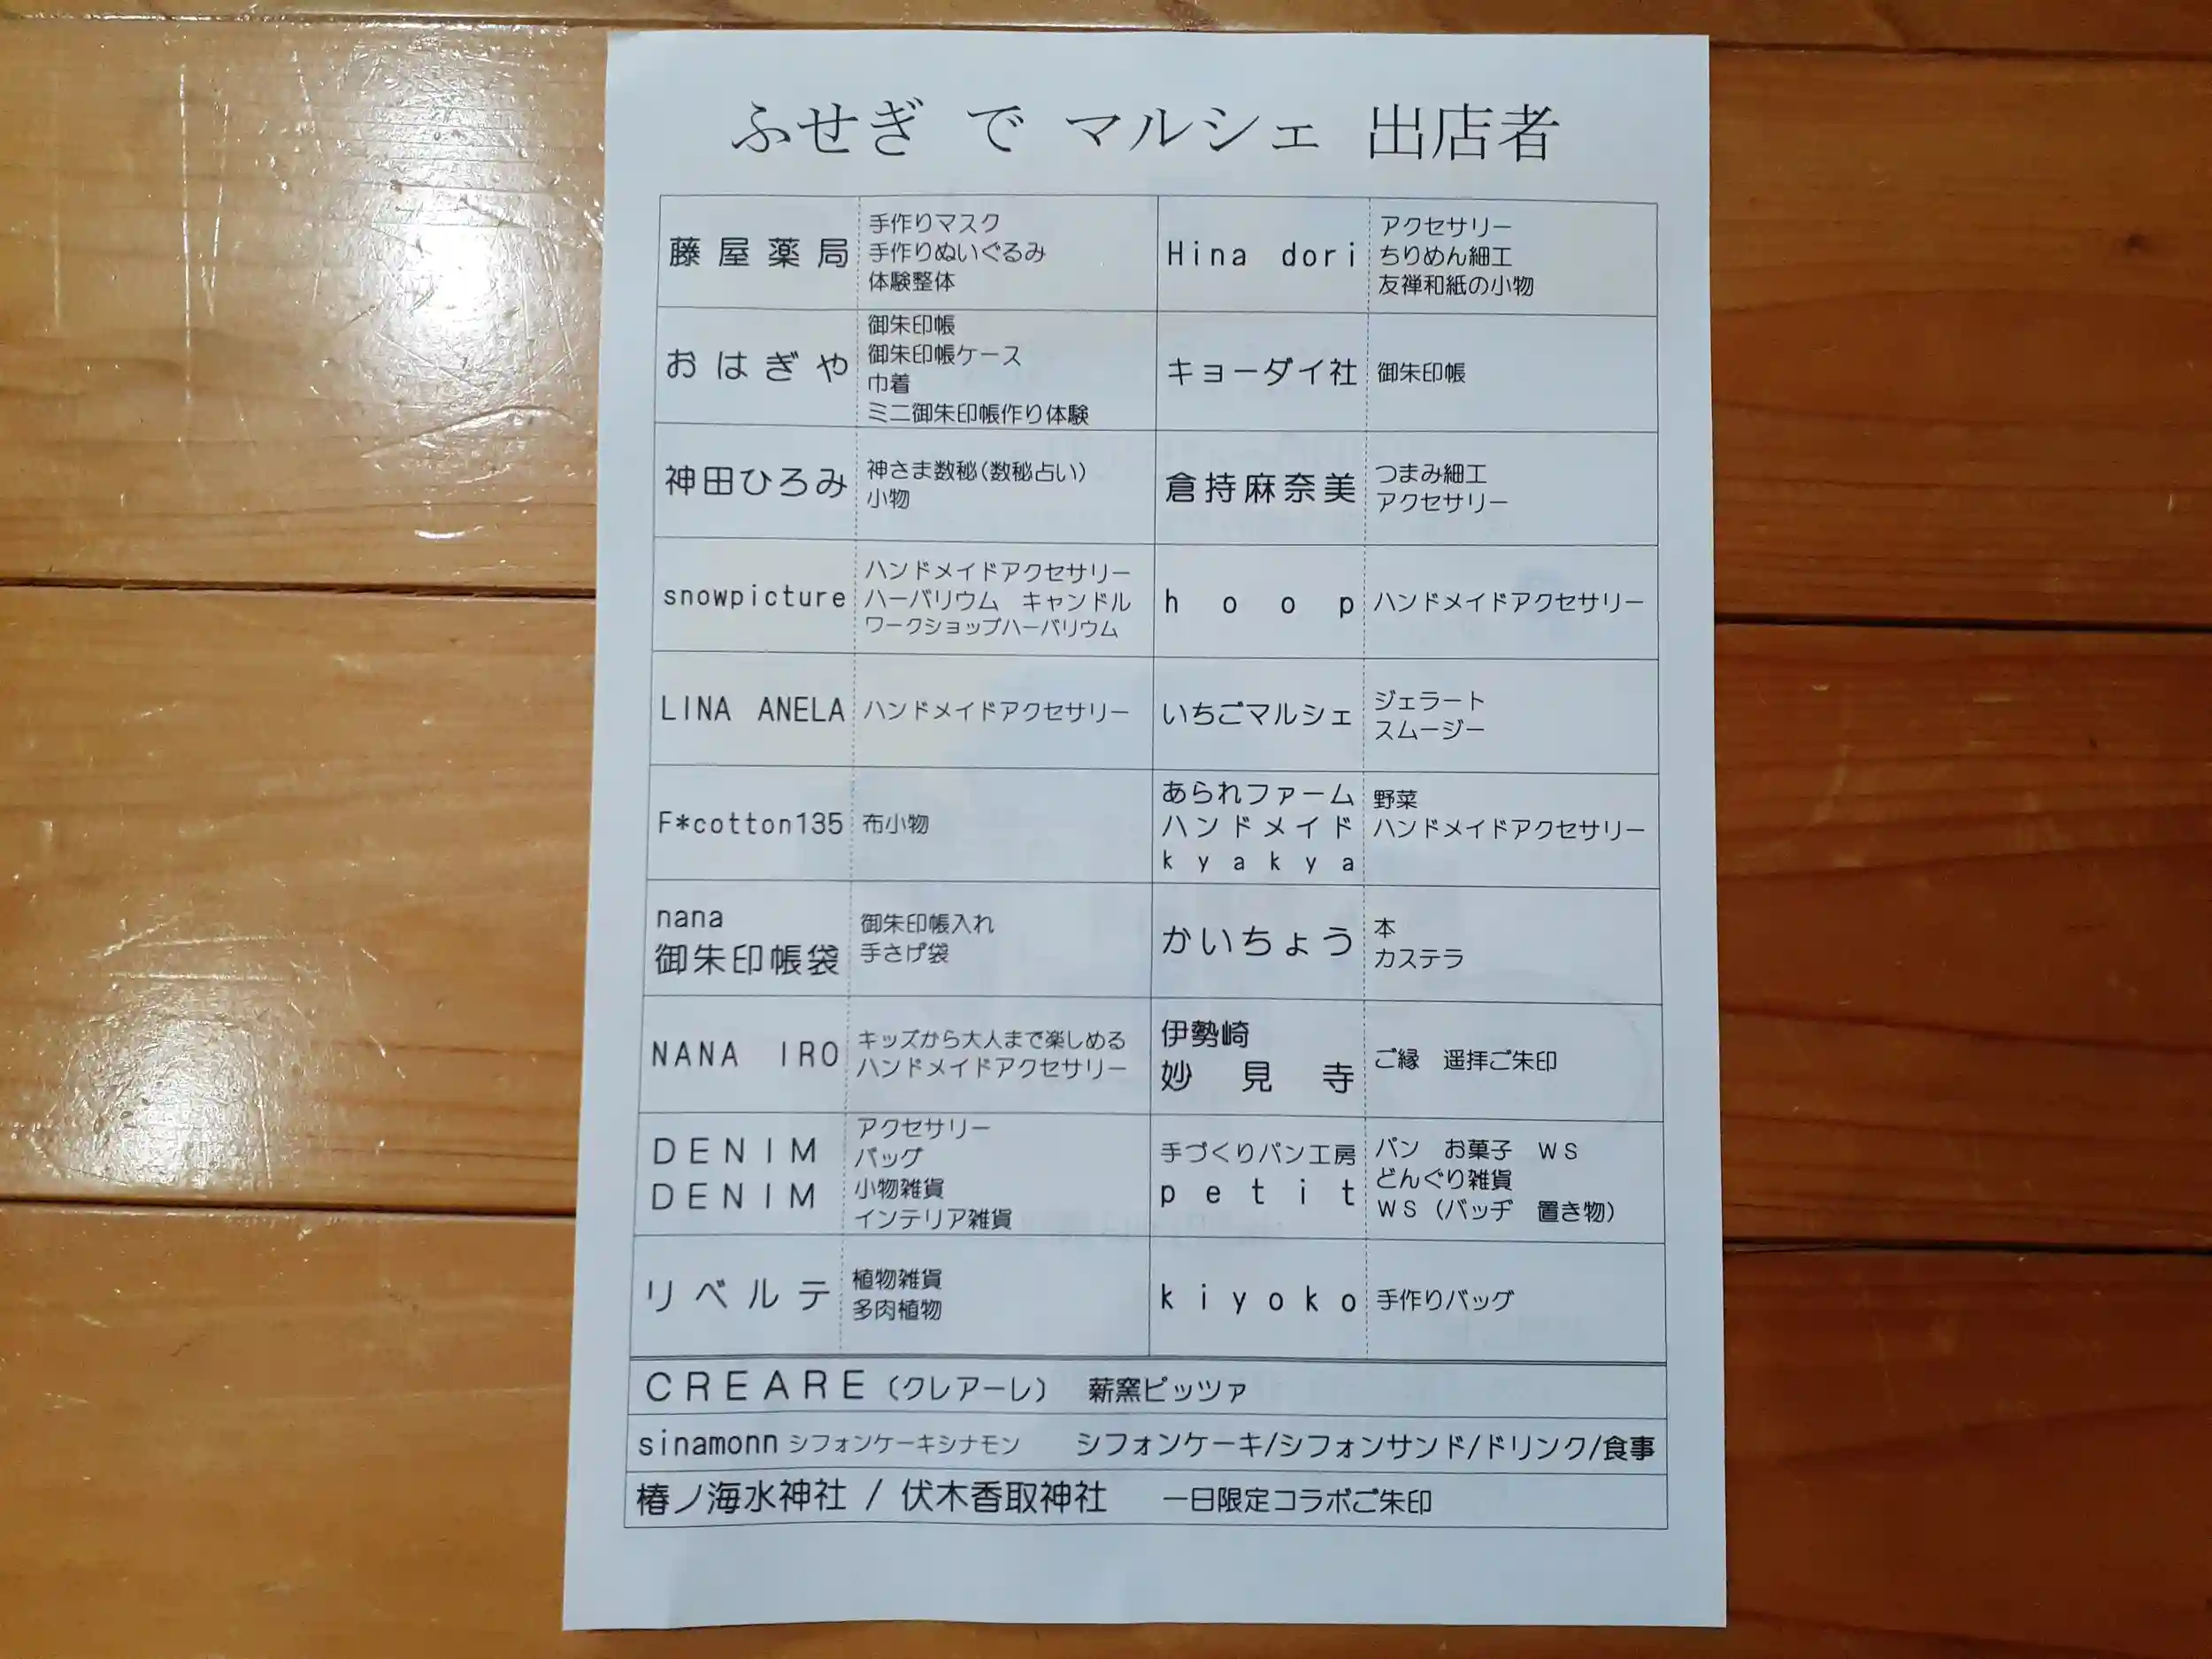 ふせぎ で マルシェ 出店者
藤屋薬局
手作りマスク
手作りぬいぐるみ
体験整体
Hina dori
アクセサリー
ちりめん細工
友禅和紙の小物
おはぎや
御朱印帳
御朱印帳ケース
巾着
ミニ御朱印帳作り体験
キョーダイ社
御朱印帳
神田ひろみ
神さま数秘(数秘占い)
小物
倉持麻奈美
つまみ細工
アクセサリー
snowpicture
ハンドメイドアクセサリー
ハーバリウム キャンドル
ワークショップハーバリウム
hoop
ハンドメイドアクセサリー
LINA ANELA
ハンドメイドアクセサリー
いちごマルシェ
ジェラート
スムージー
F*cotton135
布小物
あられファーム
ハンドメイド
kyakya
野菜
ハンドメイドアクセサリー
nana
御朱印帳袋
御朱印帳入れ
手さげ袋
かいちょう
本
カステラ
NANA IRO
キッズから大人まで楽しめる
ハンドメイドアクセサリー
伊勢崎
妙見寺
ご縁 遥拝ご朱印
DENIM
DENIM
アクセサリー
バッグ
小物雑貨
インテリア雑貨
手づくりパン工房
petit
パン お菓子 WS
どんぐり雑貨
WS(バッヂ 置き物)
リベルテ
植物雑貨
多肉植物
kiyoko
手作りバッグ
CREARE(クレアーレ) 薪窯ピッツァ
sinamonn シフォンケーキシナモン シフォンケーキ/シフォンサンド/ドリンク/食事
椿ノ海水神社 / 伏木香取神社 一日限定コラボご朱印